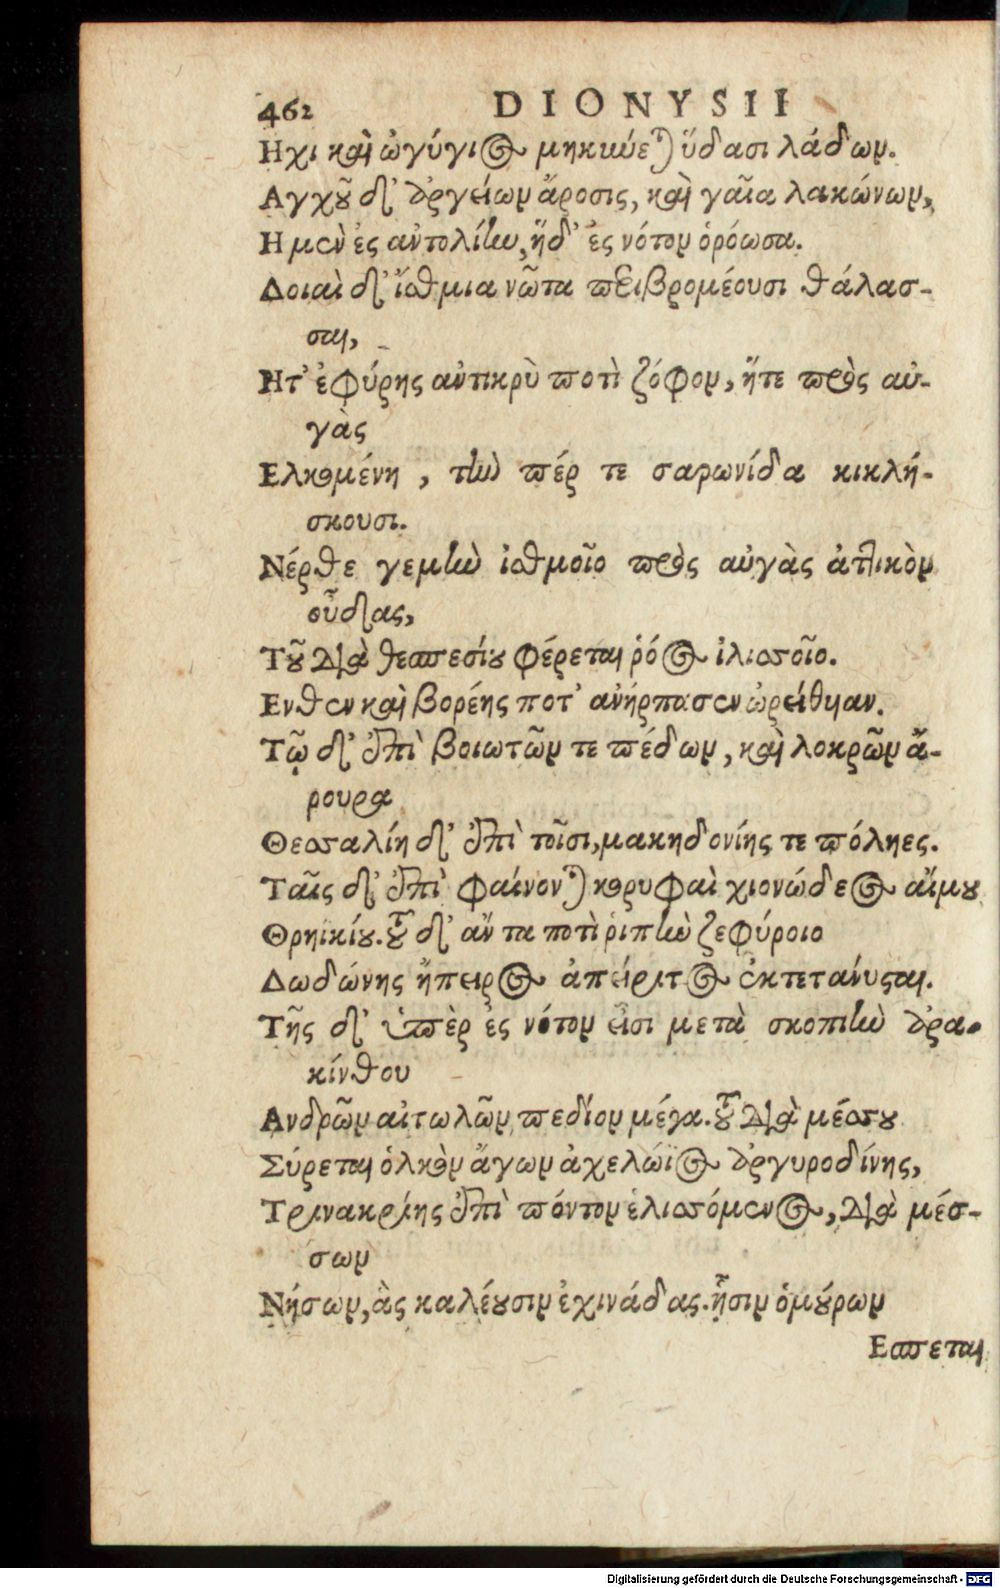 462 DIONYSII
Ηχι καὶ ὠγύγιος μηκύνεται ὕδασι λάδων.
Αγχοῦ δ' ἀργείων ἄροσις, καὶ γαῖα λακώνων,
Η μὲν ἐς ἀντολίην, ἥδ' ἐς νότον ὁρόωσα.
Δοιαὶ δ' ἴσθμια νῶτα περιβρομέουσι θάλασ-
σαι,
Ητ' ἐφύρης ἀντικρὺ ποτὶ ζόφον, ἥτε πρὸς αὐ-
γὰς
Ελκομένη, τὴν πέρ τε σαρωνίδα κικλή-
σκουσι.
Νέρθε γεμὴν ἰσθμοῖο πρὸς αὐγὰς ἀττικὸν
οὖδας,
Τοῦ διὰ θεσπεσίου φέρεται ῥόος ἰλισσοῖο.
Ενθεν καὶ βορέης ποτ' ἀνήρπασεν ὠρείθυιαν.
Τῷ δ' ἐπὶ βοιωτῶν τε πέδων, καὶ λοκρῶν ἄ-
ρουρα
Θεσσαλίη δ' ἐπὶ τοῖσι, μακηδονίης τε πόληες.
Ταῖς δ' ἐπὶ φαίνονται κορυφαὶ χιονώδεος αἵμου
Θρηϊκίου. τοῦ δ' ἄν τα ποτὶ ῥιπὴν ζεφύροιο
Δωδώνης ἤπειρος ἀπείριτος ἐκτετάνυσται.
Τῆς δ' ὑπὲρ ἐς νότον εἶσι μετὰ σκοπιὴν ἀρα-
κίνθου
Ανδρῶν αἰτωλῶν πεδίον μέγα. τοῦ διὰ μέσσου
Σύρεται ὁλκὸν ἄγων ἀχελώϊος ἀργυροδίνης,
Τρινακρίης ἐπὶ πόντον ἑλισσόμενος, διὰ μέσ-
σων
Νήσων, ἃς καλέουσιν ἐχινάδας. ᾗσιν ὁμούρων
Εσπεται
Digitalisierung gefördert durch die Deutsche Forschungsgemeinschaft - DFG